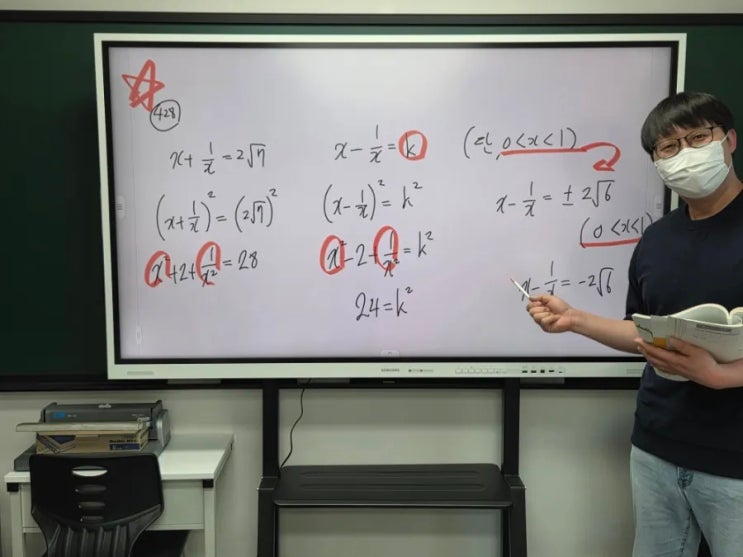 428
x + 1/x = 2√7
(x + 1/x)² = (2√7)²
x² + 2 + 1/x² = 28
x - 1/x = k
(x - 1/x)² = k²
x² - 2 + 1/x² = k²
24 = k²
(단, 0 < x < 1)
x - 1/x = ± 2√6
(0 < x < 1)
x - 1/x = -2√6
SAMSUNG